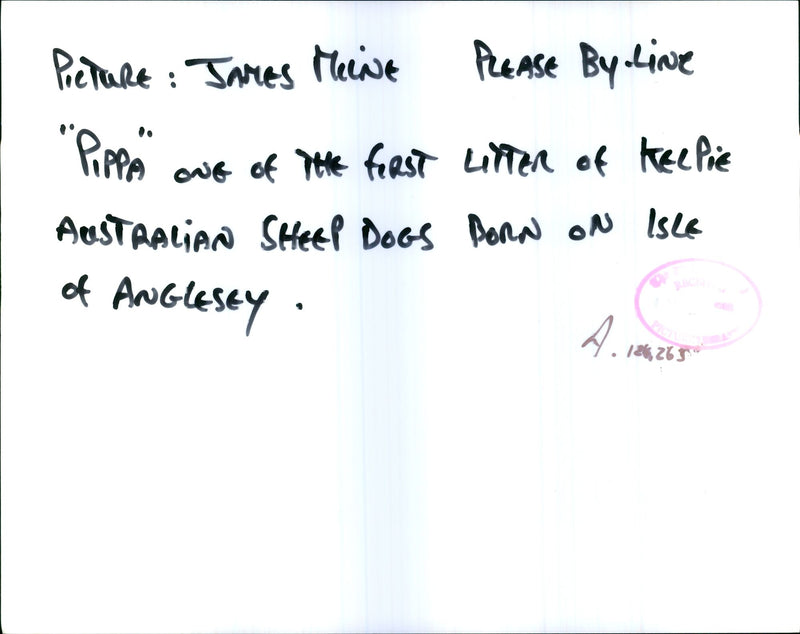 Picture: James Milne Please By-Line
"Pippa" one of the first litter of Kelpie
Australian Sheep Dogs born on Isle
of Anglesey.
RECEIVED
A. 126,265